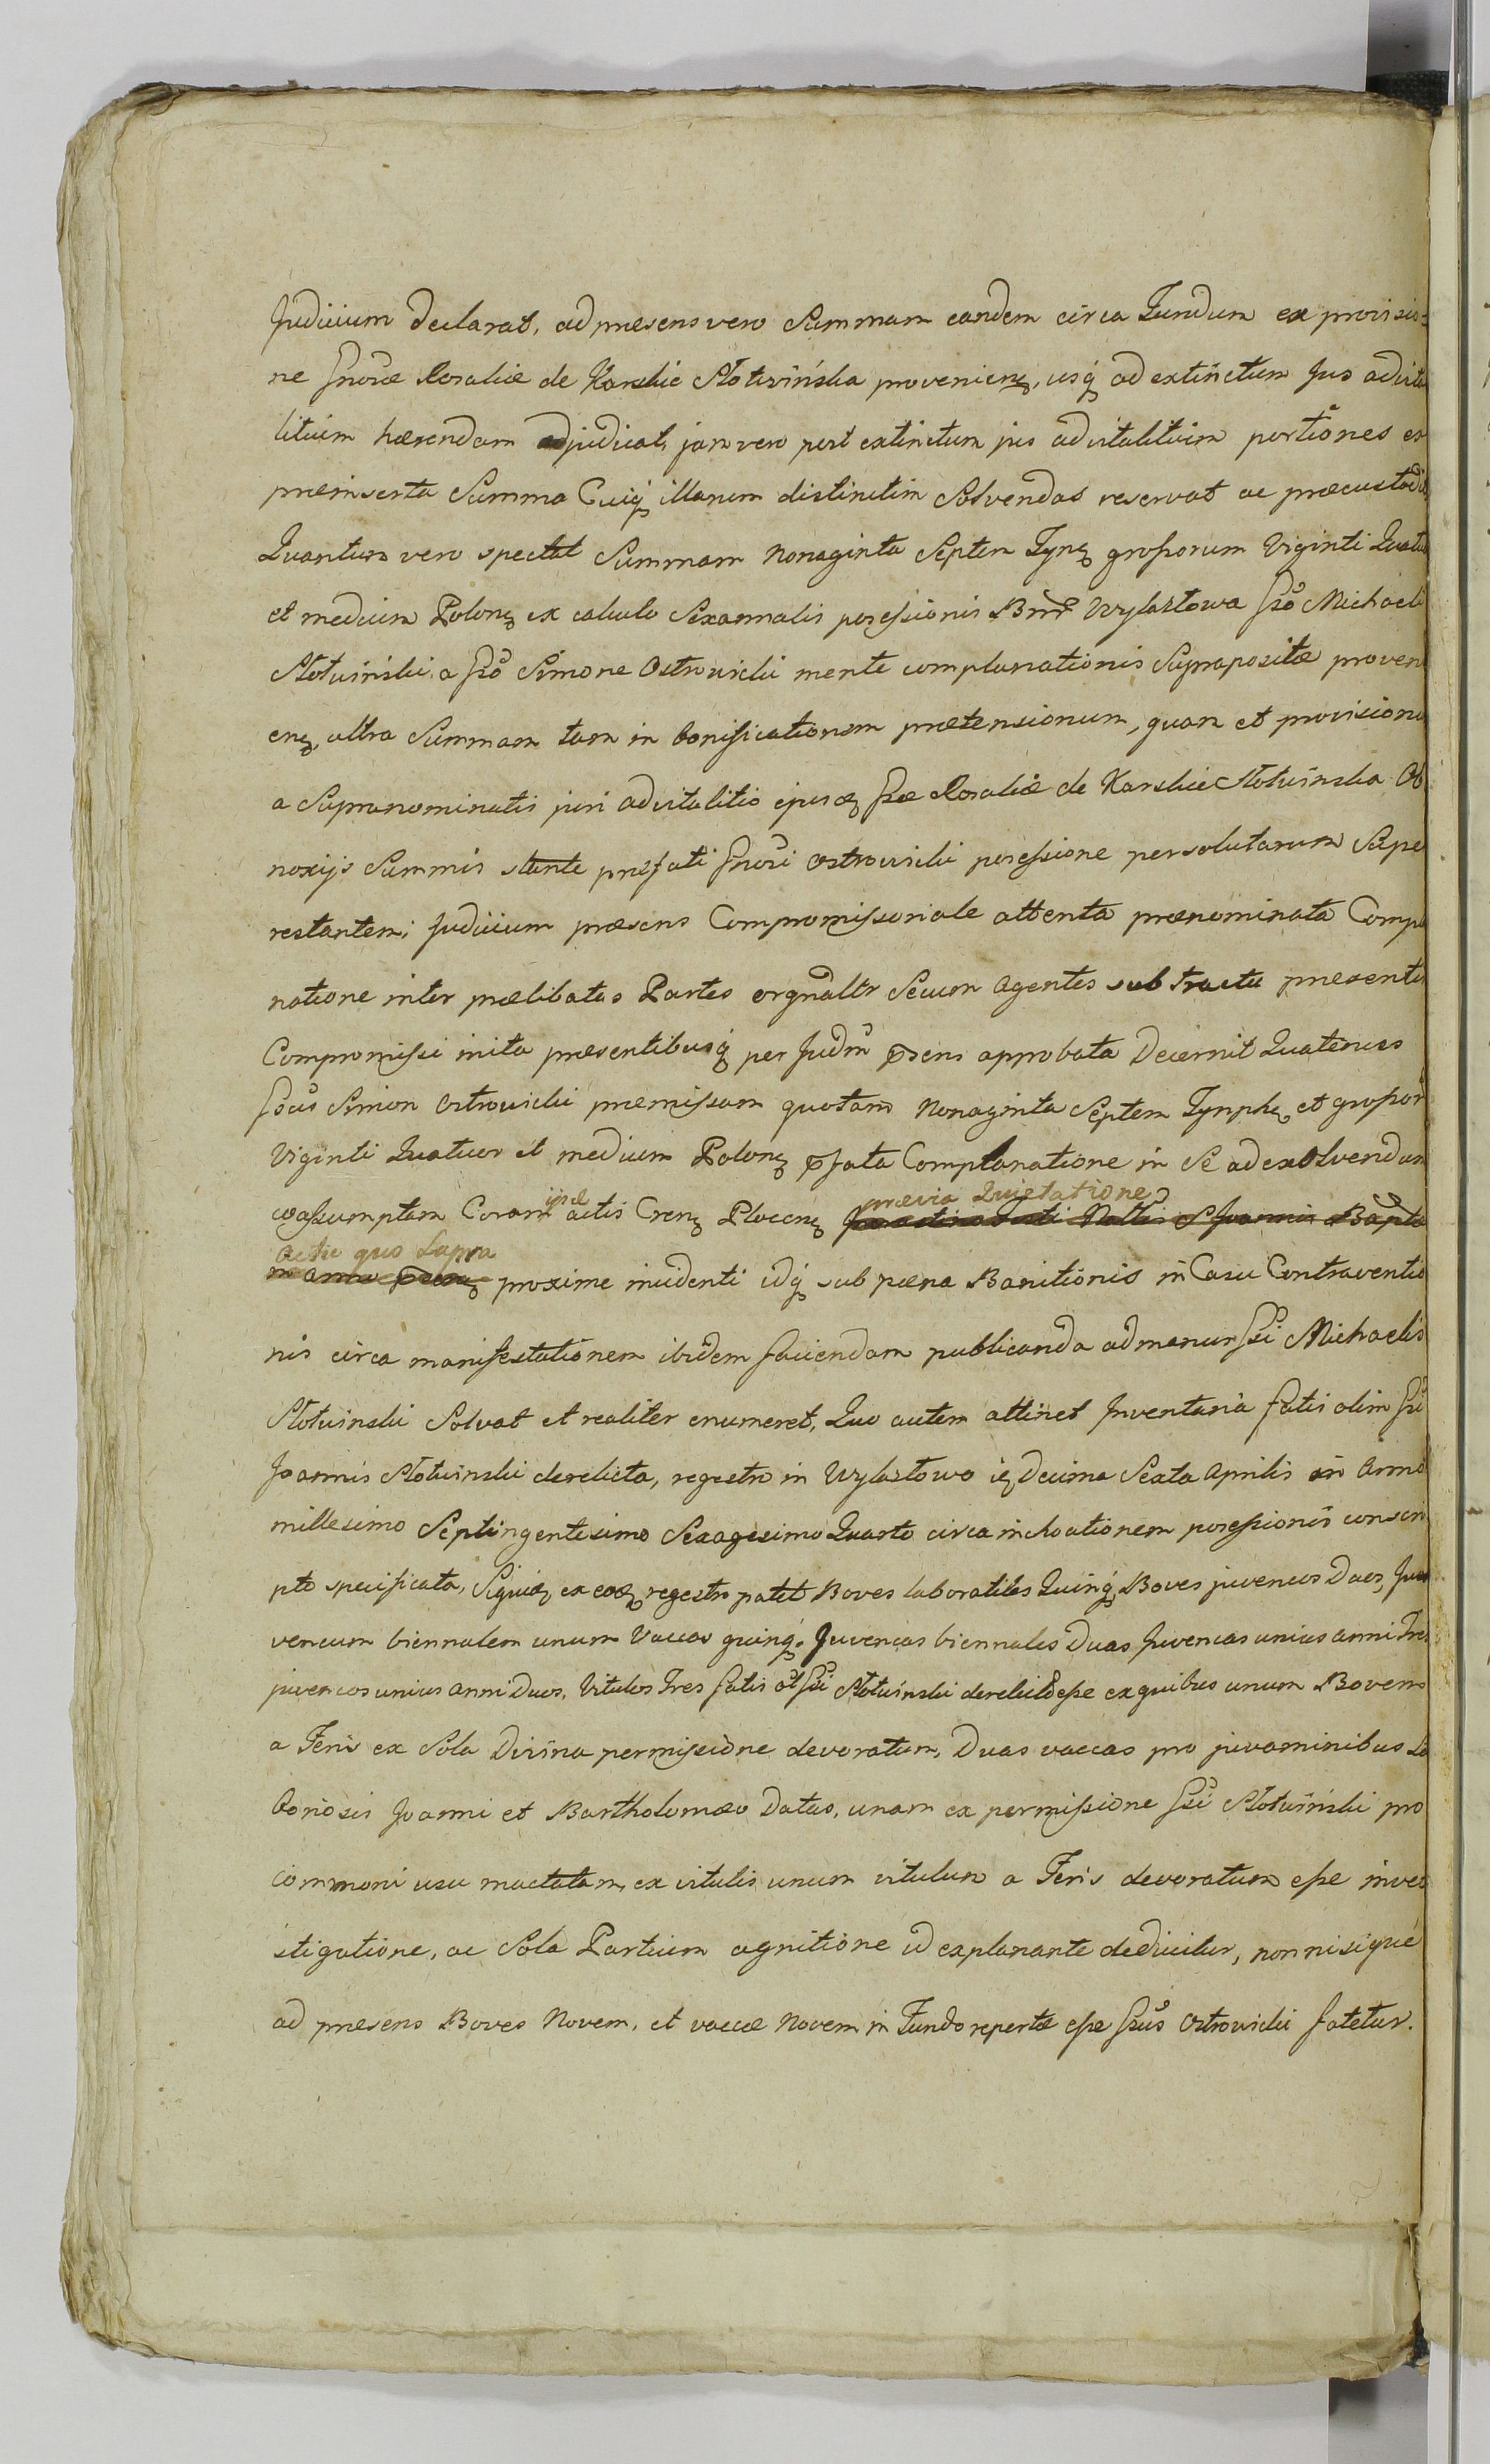 Judicium declarat, ad præsens vero Summam eandem circa Fundum ex provisio=
ne Gnosæ Rosaliæ de Karskie Słotwińska provenienꝫ, usqꝫ ad extinctum Jus advita
litium hærendam adjudicat, jam vero post extinctum jus advitalitium portiones ex
præinserta Summa Cuiqꝫ illarum distinctim Solvendas reservat ac præcustodit
Quantum vero spectat Summam Nonaginta Septem Tynꝫ grossorum Viginti Quatuo
et medium Polonꝫ ex calculo Sexannalis possessionis Bnr͂ Wylaztowa Gso Michaeli
Słotwiński a Gso Simone Ostrowicki mente complanationis Supraposita proveni
enꝫ, ultra Summam tam in bonificationem prætensionum, quam et provisiona
a Supranominatis juri advitalitio ejusdꝫ Gsæ Rosaliæ de Karskie Słotwińska Ob
noxijs Summis stante præfati Gnosi Ostrowicki possessione persolutarum Supe
restantem; Judicium præsens Compromissoriale attenta prænominata Compla
natione inter prælibatas Partes orgnaltr Secum Agentes sub tractu præsentis
Compromissi inita præsentibusqꝫ per Judm̃ pn̄sens approbata Decernit Quatenus
Gsus Simon Ostrowicki præmissam quotam Nonaginta Septem Tynphꝫ, et grossor̃
Viginti Quatuor et medium Polonꝫ p̄fata Complanatione in Se ad exolvendum
coassumptam Coram ijsdꝫ actis Crenꝫ Plocenꝫ prævia Quietatione
actu quo Supra proxime incidenti idqꝫ sub pæna Banitionis in Casu Contraventio
nis circa manifestationem ibidem faciendam publicanda ad manus Gsi Michaelis
Słotwiński Solvat et realiter enumeret, Quo autem attinet Jnventaria fatis olim Gsi
Joannis Słotwiński derelicta, regestro in Wylaztowo ię Decima Sexta Aprilis in Anno
millesimo Septingentesimo Sexagesimo Quarto circa inchoationem possessionis conscri
pto specificata, Siquidꝫ ex eodꝫ regestro patet Boves laboratiles Quinqꝫ, Boves juvencos Duos, Juu
vencum biennalem unum Vaccas quinqꝫ. Juvencas biennales Duas Juvencas unius anni Tres
juvencos unius anni Duos, Vitulos Tres fatis ol̃ Gsi Słotwiński derelictas esse ex quibus unum Bovem
a Feris ex Sola Divina permissione devoratum, Duas vaccas pro juvaminibus La
boriosis Joanni et Bartholomæo Datas, unam ex permissione Gsi Słotwiński pro
communi usu mactatam, ex vitulis unum vitulum a Feris devoratum esse inves
stigatione, ac Sola Partium agnitione id explanante deducitur, non nisique
ad præsens Boves Novem, et vaccæ Novem in Fundo repertæ esse Gsus Ostrowicki fatetur.